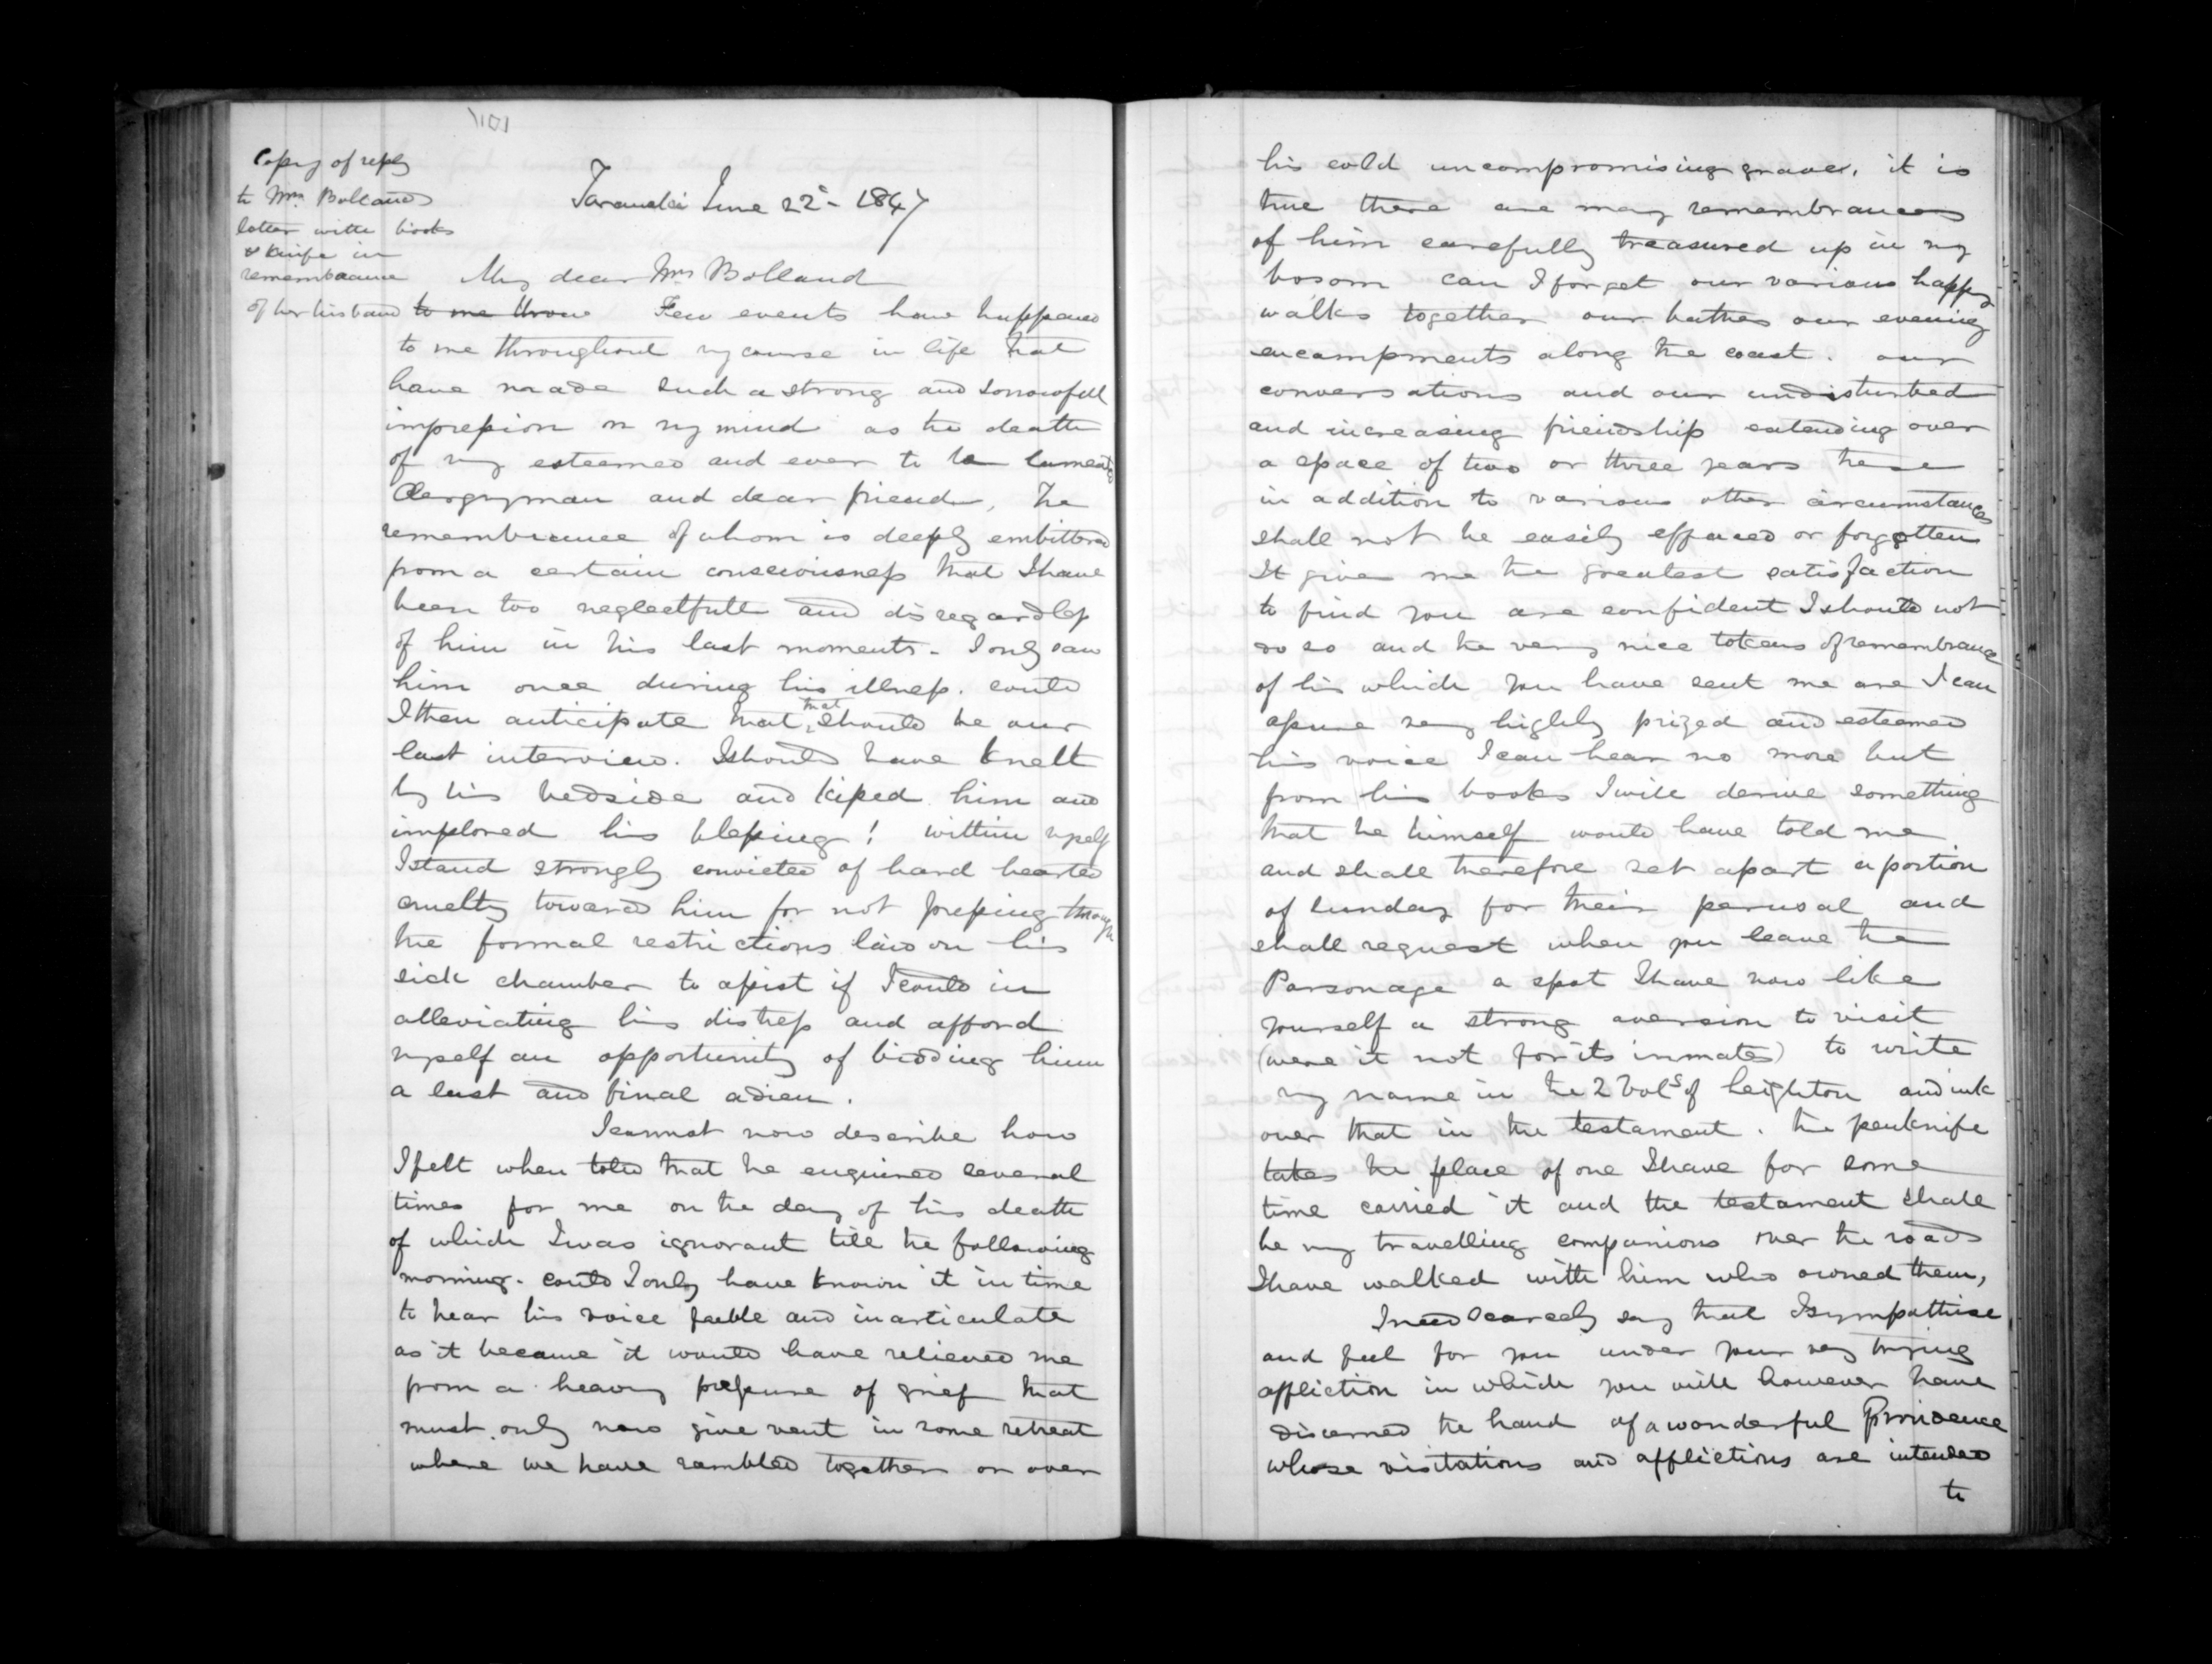 Copy of reply
to Mrs. Bolland
letter with books
& knife in
remembrance
of her husband
Taranaki June 22d 1847
My dear Mrs Bolland
to me throu Few events have happened
to me throughout my course in life that
have made such a strong and sorrowfull
impression on my mind as the death
of my esteemed and ever to be lamented
Clergyman and dear friend, the
remembrance of whom is deeply embittered
from a certain consciousness that I have
been too neglectfull and disregardless
of him in his last moments. I only saw
him once during his illness. could
I then anticipate that that should be our
last interview. I should have knelt
by his bedside and kissed him and
implored his blessing! within myself
I stand strongly convicted of hard hearted
cruelty toward him for not pressing through
the formal restrictions laid on his
sick chamber to assist if I could in
alleviating his distress and afford
myself an opportunity of bidding him
a last and final adieu.
I cannot now describe how
I felt when told that he enquired several
times for me on the day of his death
of which I was ignorant till the following
morning. could I only have known it in time
to hear his voice feeble and inarticulate
as it became it would have relieved me
from a heavy pressure of grief that
must only now give vent in some retreat
where we have rambled together or over
his cold uncompromising grave. it is
true there are many remembrances
of him carefully treasured up in my
bosom can I forget our various happy
walks together our bathes our evening
encampments along the coast. our
conversations and our undisturbed
and increasing friendship extending over
a space of two or three years these
in addition to various other circumstances
shall not be easily effaced or forgotten
It gives me the greatest satisfaction
to find you are confident I should not
do so and the very nice tokens of remembrance
of his which you have sent me are I can
assure very highly prized and esteemed
his voice I can hear no more but
from his books I will derive something
that he himself would have told me
and shall therefore set apart a portion
of Sunday for their perusal and
shall request when you leave the
Parsonage a spot I have now like
yourself a strong aversion to visit
(were it not for its inmates) to write
my name in the 2 Vols of Leighton and ink
over that in the testament. the penknife
takes the place of one I have for some
time carried it and the testament shall
be my travelling companions over the roads
I have walked with him who owned them,
I need scarcely say that I sympathise
and feel for you under your very trying
affliction in which you will however have
discerned the hand of a wonderful Providence
whose visitations and afflictions are intended
to